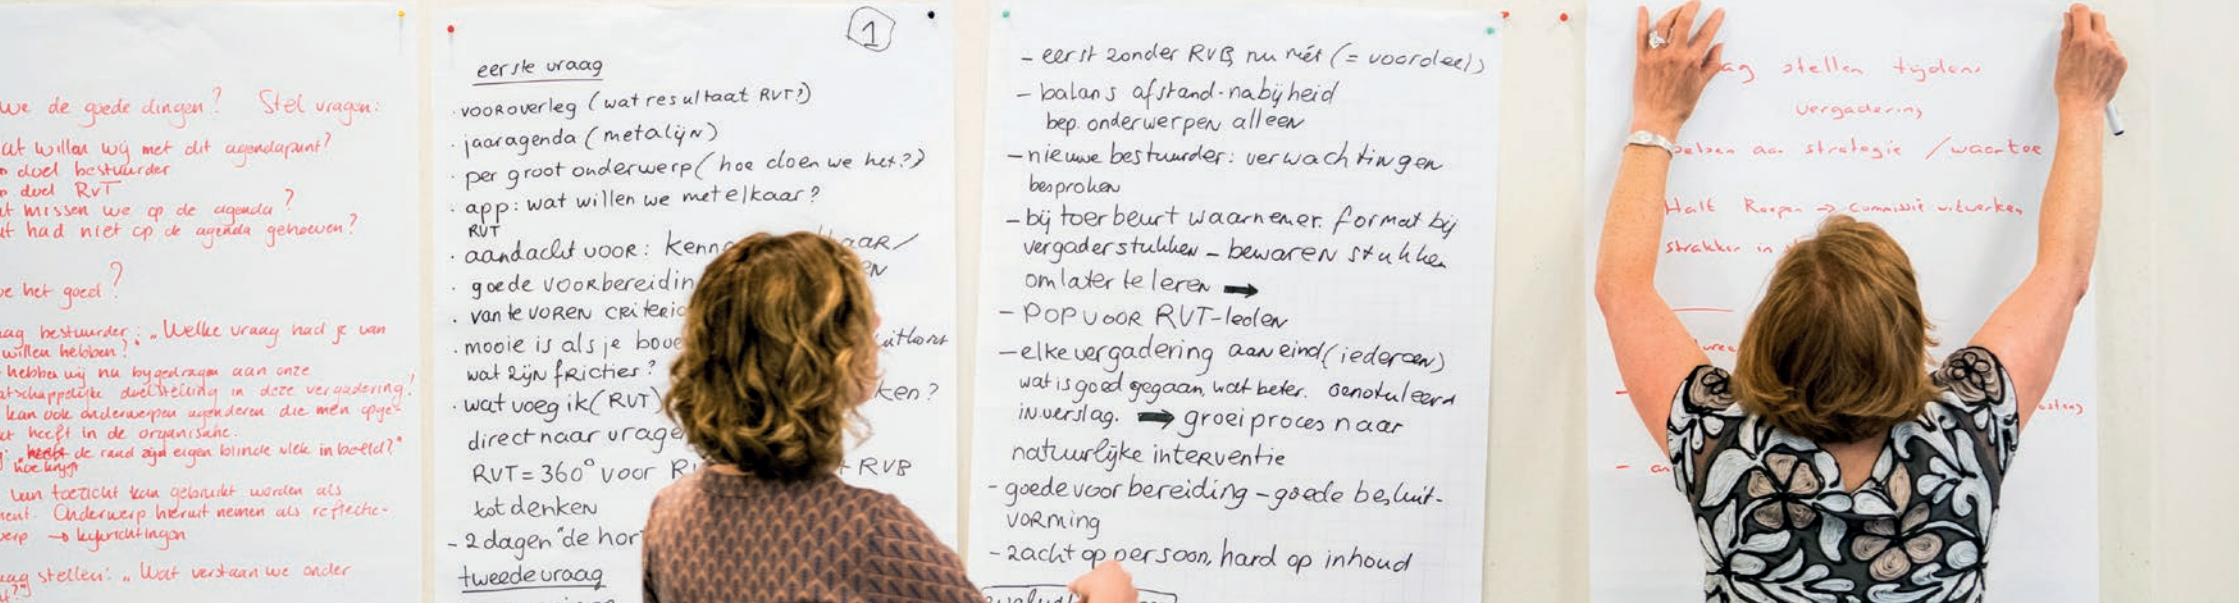 we de goede dingen? Stel vragen:
at willen wij met dit agendapunt?
doel bestuurder
doel RvT
missen we op de agenda?
had niet op de agenda gehoeven?
het goed?
bestuurder: „Welke vraag had je van
willen hebben?
hebben wij nu bijgedragen aan onze
atschappelijke doelstelling in deze vergadering?
kan ook onderwerpen agenderen die men opge-
heeft in de organisatie.
hoe krijgt de raad zijn eigen blinde vlek in beeld?"
van toezicht kan gebruikt worden als
ment. Onderwerp hieruit nemen als reflectie-
werp → kijkrichtingen
stellen: „Wat verstaan we onder
1
eerste vraag
· vooroverleg (wat resultaat RVT?)
· jaaragenda (metalijn)
· per groot onderwerp (hoe doen we het?)
· app: wat willen we met elkaar?
RVT
· aandacht voor: kenn aar/
en
· goede voorbereidin
· van te voren criteri
· mooie is als je bove uitkomt
wat zijn fricties?
· wat voeg ik (RVT) ken?
direct naar vrage
RVT = 360° voor R + RVB
tot denken
- 2 dagen "de hor
tweede vraag
- eerst zonder RVB, nu mét (= voordeel)
- balans afstand-nabijheid
bep. onderwerpen alleen
- nieuwe bestuurder: verwachtingen
besproken
- bij toerbeurt waarnemer. format bij
vergaderstukken - bewaren stukken
om later te leren →
- POP voor RVT-leden
- elke vergadering aan eind (iedereen)
wat is goed gegaan, wat beter. Genotuleerd
in verslag. → groeiproces naar
natuurlijke interventie
- goede voorbereiding - goede besluit-
vorming
- zacht op persoon, hard op inhoud
ag stellen tijdens
vergadering
aan strategie / waartoe
Halt Roepen → commissie uitwerken
strakker in